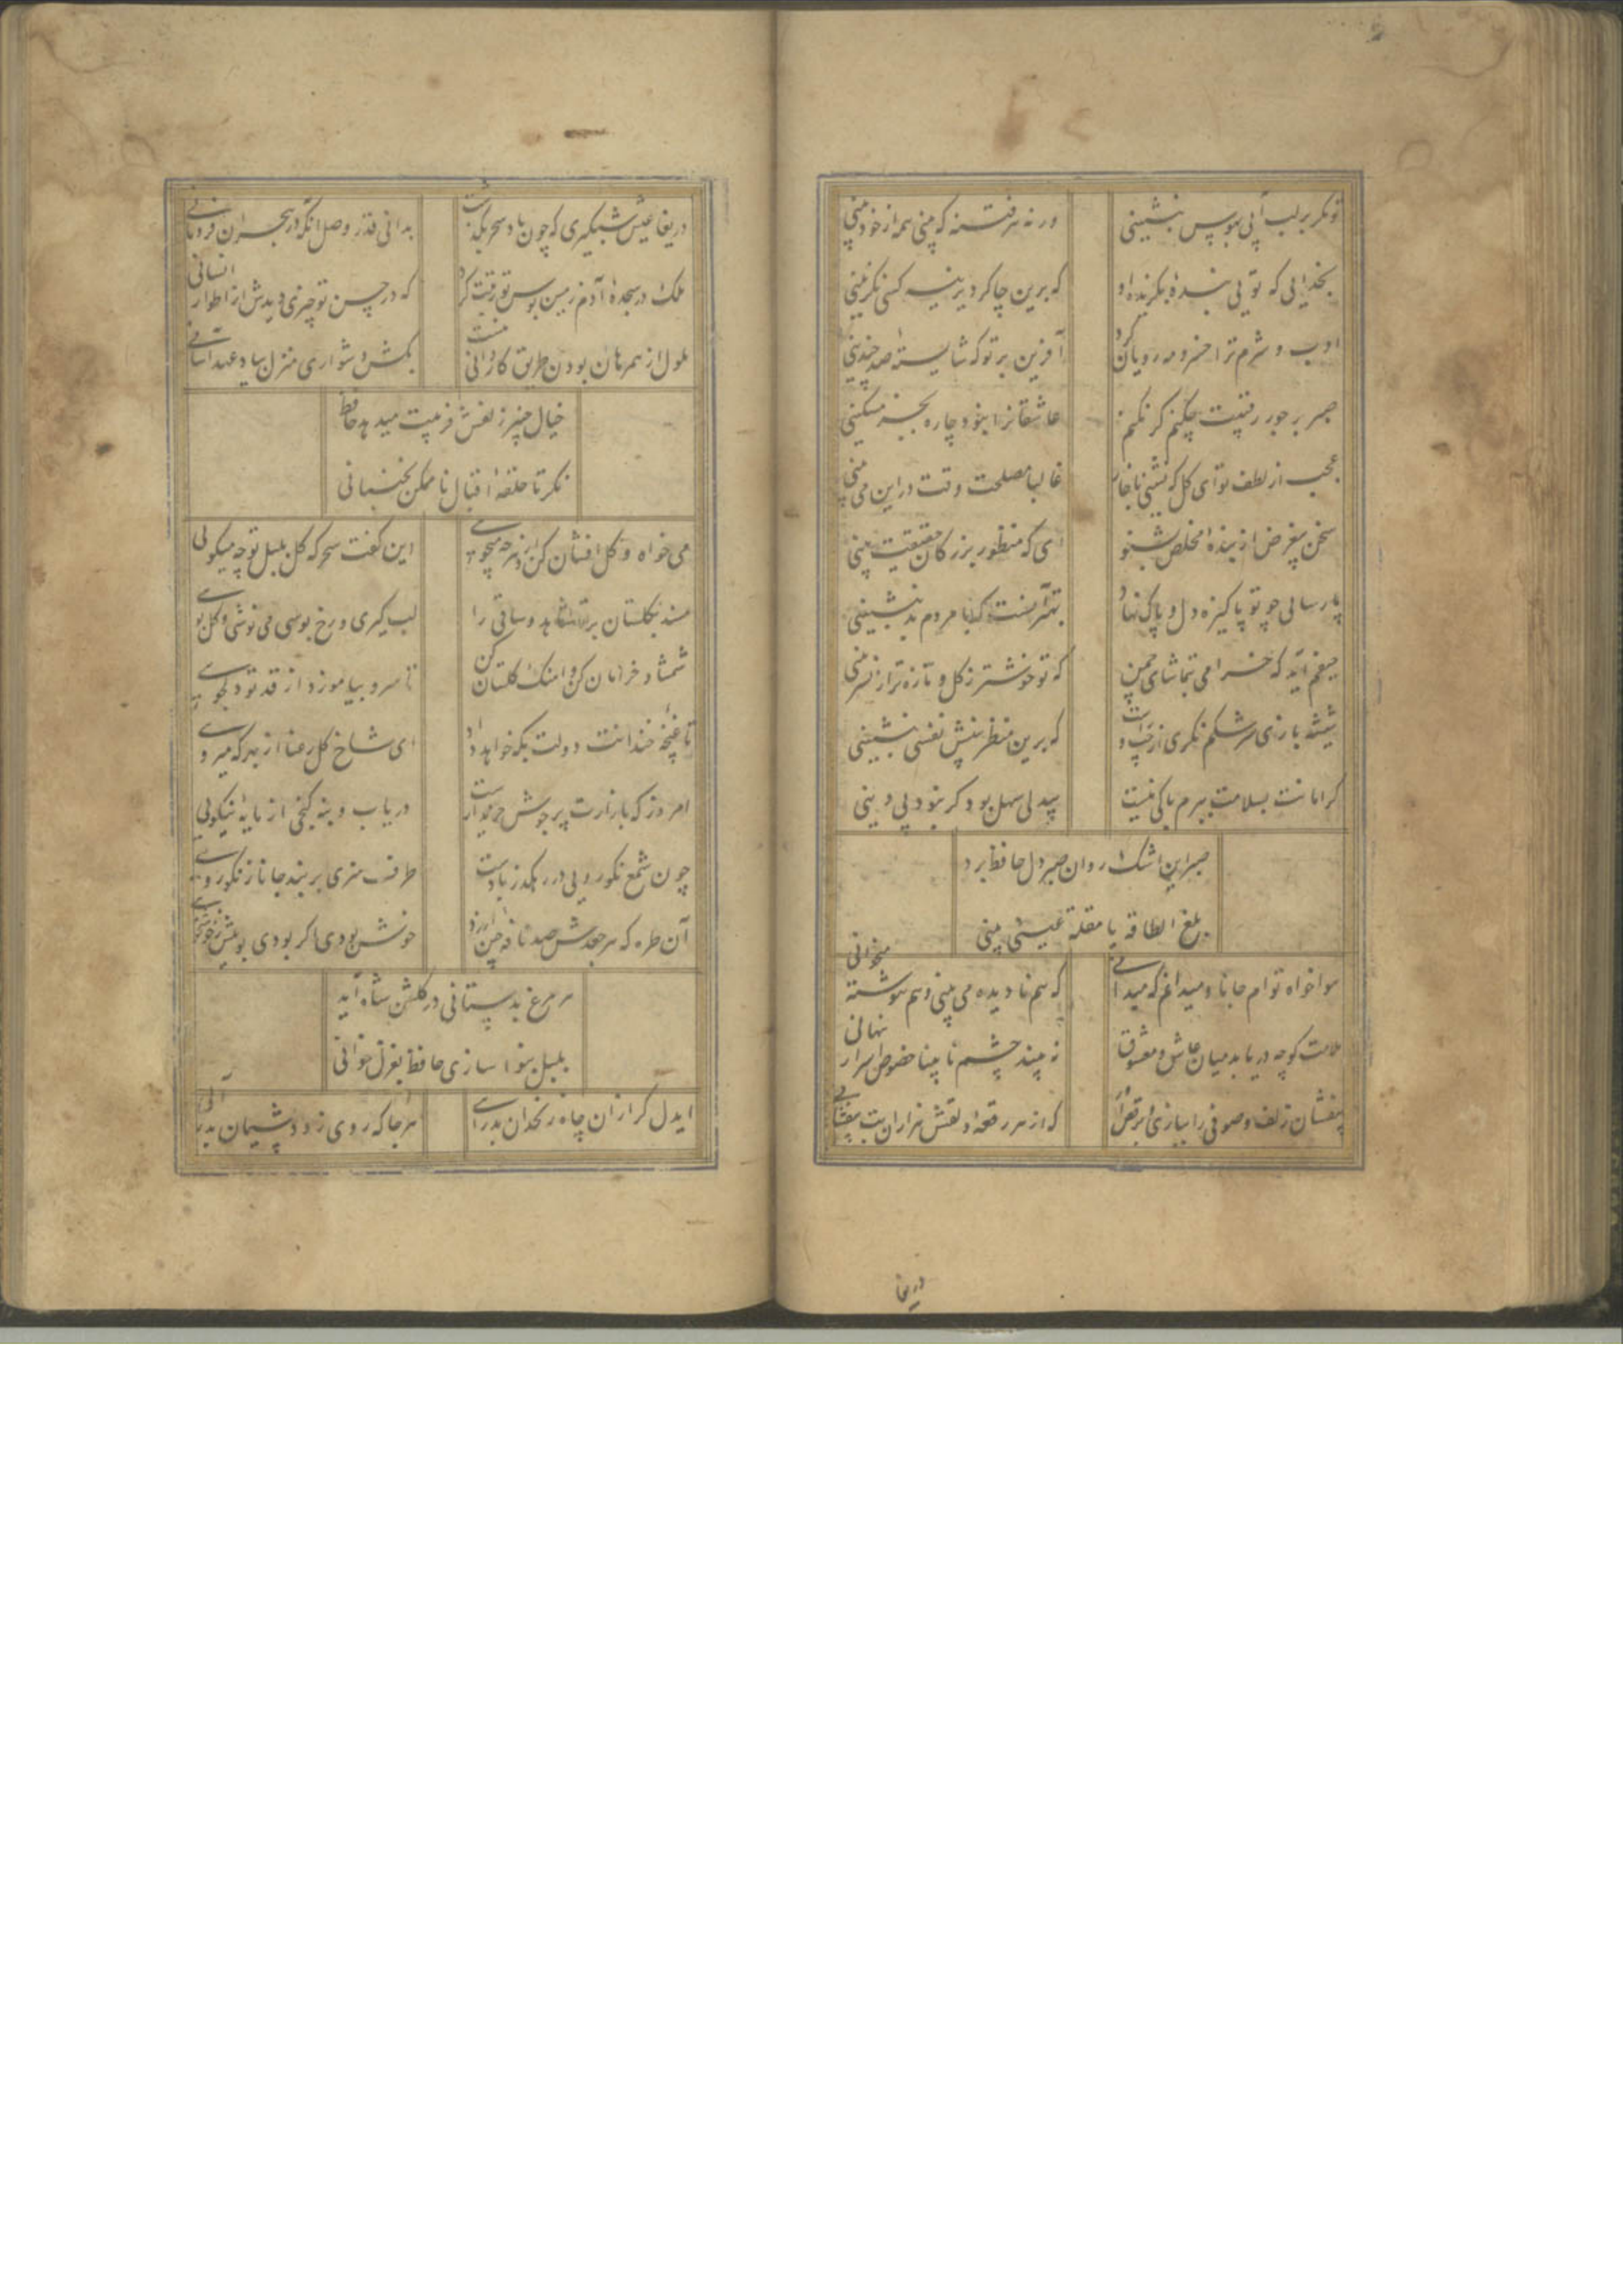 تو مگر بر لب آبی بهوس بنشینی
ورنه هر فتنه که بینی همه از خود بینی
بخدایی که تویی بنده بگزیده او
که برین چاکر دیرینه کسی نگزینی
ادب و شرم ترا خسرو مه رویان کرد
آفرین بر تو که شایسته صد چندینی
صبر بر جور رقیبت چکنم گر نکنم
عاشقانرا نبود چاره بجز مسکینی
عجب از لطف تو ای گل که نشینی با خار
غالبا مصلحت وقت در این می بینی
سخن بیغرض از بنده مخلص بشنو
ای که منظور بزرگان حقیقت بینی
پارسایی چو تو پاکیزه دل و پاک نهاد
بهتر آنست که با مردم بد ننشینی
حیفم آید که خرامی بتماشای چمن
که تو خوشتر ز گل و تازه تر از نسرینی
شیشه بازی سرشکم نگری از چپ و راست
که برین منظر بینش نفسی بنشینی
گر امانت بسلامت ببرم باکی نیست
بیدلی سهل بود گر نبود بی دینی
صبر این اشک روان صبر دل حافظ برد
بلغ الطاقه یا مقلة عینی بینی
هواخواه توام جانا و میدانم که میدانی
که هم نادیده می بینی و هم ننوشته میخوانی
ملامت گو چه دریابد میان عاشق و معشوق
نه بیند چشم نابینا خصوص اسرار نهانی
بیفشان زلف و صوفی را ببازی و برقص آر
که از هر رقعه دلقش هزاران بت بیفشانی
دریغا
دریغا عیش شبگیری که چون باد سحر بگذشت
بدانی قدر وصل آنگه که در هجران فرو مانی
ملک در سجده آدم زمین بوس تو نیت کرد
که در حسن تو چیزی دیدش از اطوار انسانی
ملول از همرهان بودن طریق کاردانی نیست
بکش دشواری منزل بیاد عهد آسانی
خیال چنبر زلفش فریبت میدهد حافظ
نگر تا حلقه اقبال ناممکن نجنبانی
می خواه و گل افشان کن از دهر چه میجویی
این گفت سحرگه گل بلبل تو چه میگویی
مسند بگلستان بر تا شاهد و ساقی را
لب گیری و رخ بوسی می نوشی و گل بویی
شمشاد خرامان کن و آهنگ گلستان کن
تا سرو بیاموزد از قد تو دلجویی
تا غنچه خندانت دولت بکه خواهد داد
ای شاخ گل رعنا از بهر که میرویی
امروز که بازارت پر جوش خریدارست
دریاب و بنه گنجی از مایه نیکویی
چون شمع نکورویی در رهگذر بادست
طرف هنری بربند جانا ز نکورویی
آن طره که هر جعدش صد نافه چین ارزد
خوش بودی اگر بودی بوییش ز خوشخویی
هر مرغ بدستانی در گلشن شاه آید
بلبل بنوا سازی حافظ بغزل خوانی
ایدل گر از آن چاه زنخدان بدر آیی
هر جا که روی زود پشیمان بدر آیی